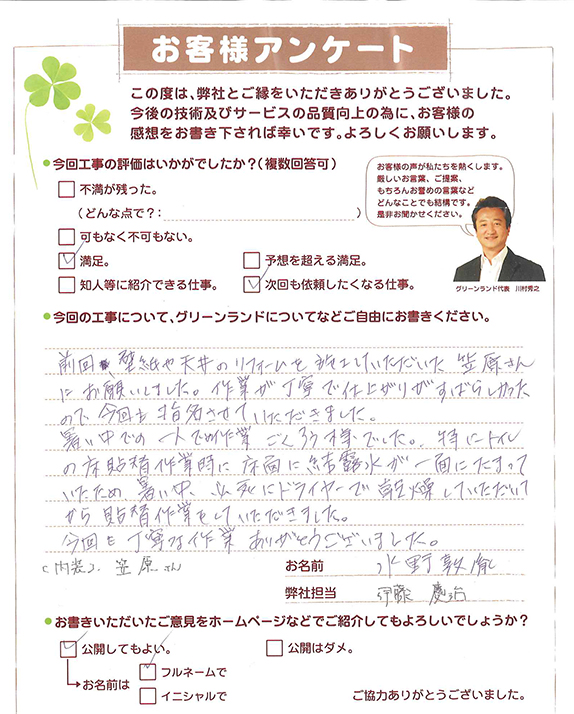 お客様アンケート
この度は、弊社とご縁をいただきありがとうございました。
今後の技術及びサービスの品質向上の為に、お客様の
感想をお書き下されば幸いです。よろしくお願いします。
今回工事の評価はいかがでしたか?(複数回答可)
不満が残った。
(どんな点で?:)
可もなく不可もない。
満足。
予想を超える満足。
知人等に紹介できる仕事。
次回も依頼したくなる仕事。
お客様の声が私たちを熱くします。
厳しいお言葉、ご提案、
もちろんお誉めの言葉など
どんなことでも結構です。
是非お聞かせください。
グリーンランド代表 川村秀之
今回の工事について、グリーンランドについてなどご自由にお書きください。
前回 壁紙や天井のリフォームを施工していただいた 笠原さん
にお願いしました。作業が丁寧で仕上がりがすばらしかった
ので今回も指名させていただきました。
暑い中での一人での作業ごくろう様でした。特にトイレ
の床貼替作業時に床面に結露水が一面にたまって
いたため、暑い中、必死にドライヤーで乾燥していただいて
から貼替作業をしていただきました。
今回も丁寧な作業ありがとうございました。
(内装)、笠原さん
お名前 水野敦
弊社担当 伊藤 慶治
お書きいただいたご意見をホームページなどでご紹介してもよろしいでしょうか?
公開してもよい。
公開はダメ。
お名前は
フルネームで
イニシャルで
ご協力ありがとうございました。